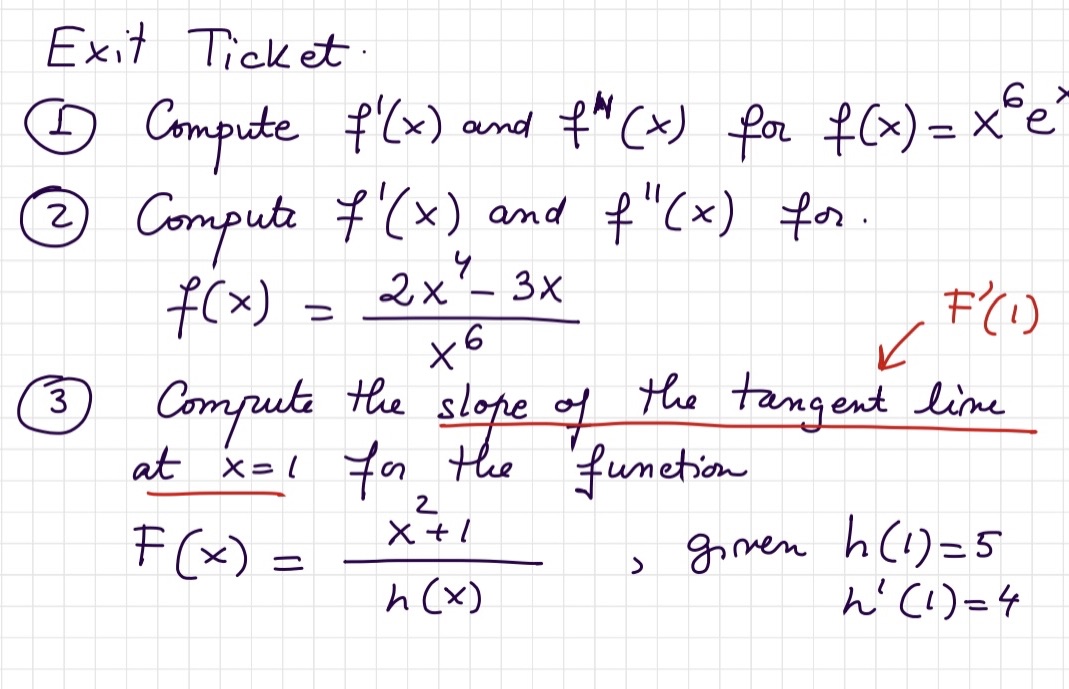 Exit Ticket.
① Compute f'(x) and f''(x) for f(x) = x⁶eˣ
② Compute f'(x) and f''(x) for.
f(x) = (2x⁴ - 3x) / x⁶
F'(1)
③ Compute the slope of the tangent line
at x=1 for the function
F(x) = (x²+1) / h(x) , given h(1)=5
h'(1)=4